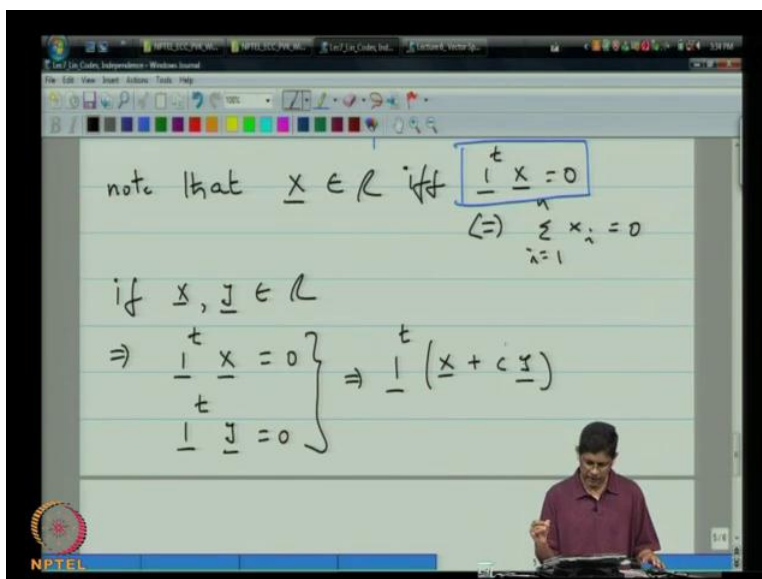 Lec7_Lin_Codes, Independence - Windows Journal
File Edit View Insert Actions Tools Help
note that x ∈ R iff 1^t x = 0
(=) Σ_{i=1}^{n} x_i = 0
if x, y ∈ R
⇒ 1^t x = 0
1^t y = 0 } ⇒ 1^t (x + c y)
5/6
NPTEL